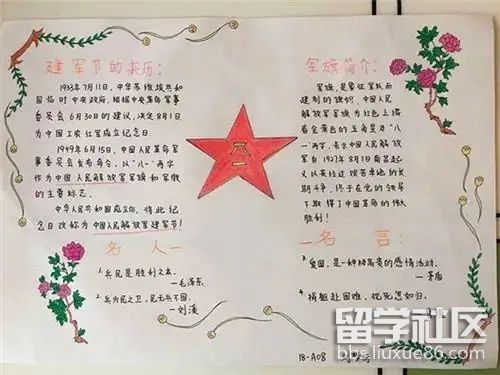 建军节的来历:
1933年7月11日,中华苏维埃共和
国临时中央政府,根据中央革命军事
委员会6月30日的建议,决定8月1日
为中国工农红军成立纪念日
1949年6月15日,中国人民革命军
事委员会发布命令,以“八一”两字
作为中国人民解放军军旗和军徽
的主要标志。
中华人民共和国成立后,将此纪
念日改称为中国人民解放军建军节!
八一
军旗简介:
军旗,是象征军队而
建制的旗帜,中国人民
解放军军旗为红色上缀
着金黄色的五角星及“八
一”两字,表示中国人民解放
军自1927年8月1日南昌起
义以来经过艰苦卓绝的长
期斗争,终于在党的领导
下取得了中国革命的伟大
胜利!
名人一
1、兵民是胜利之本。
—毛泽东
2、兵为民之卫,民无兵不固。
—刘
一名言:
3、爱国,是一种极高贵的感情活动。
—茅盾
4、捐躯赴国难,视死忽如归。
18-A08
留学社区
bbs.liuxue86.com